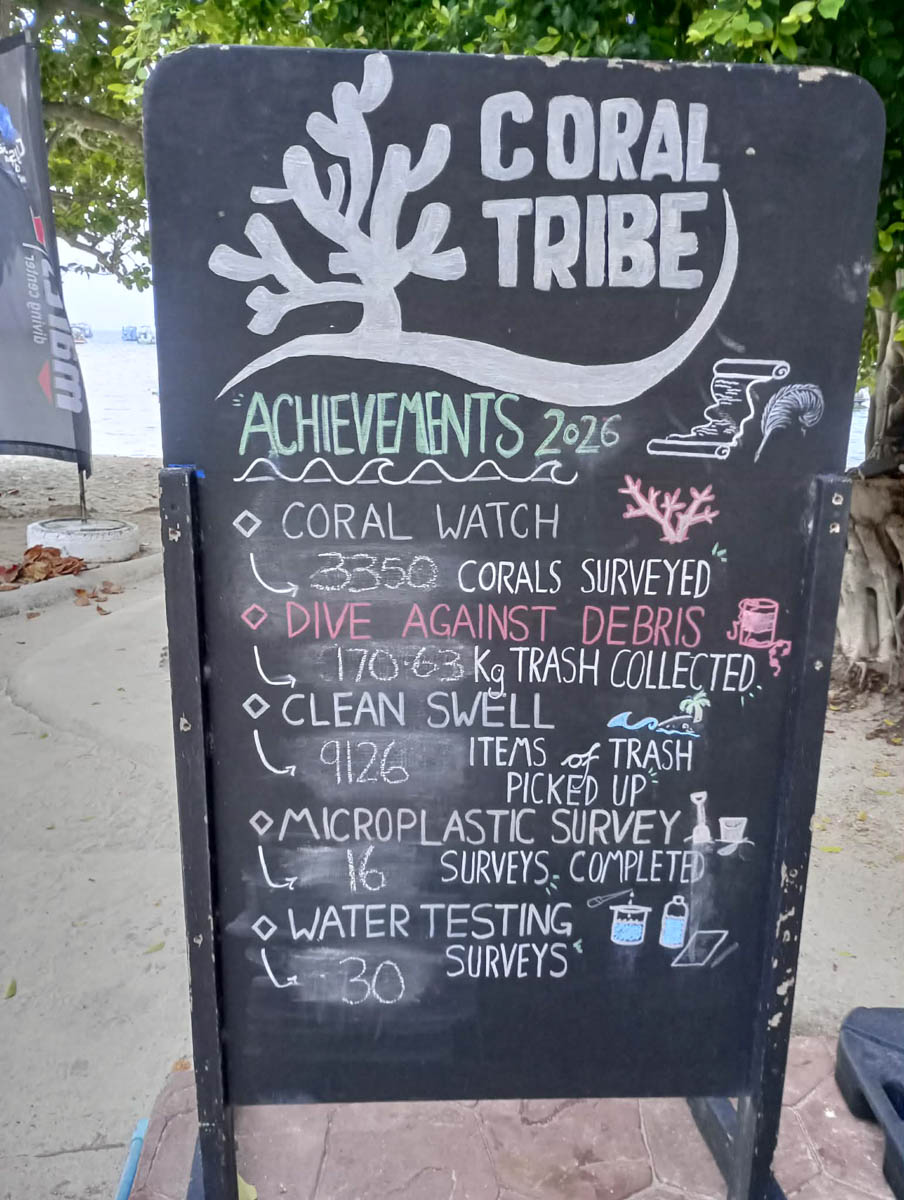 CORAL
TRIBE
ACHIEVEMENTS 2026
CORAL WATCH
3350 CORALS SURVEYED
DIVE AGAINST DEBRIS
170.63 Kg TRASH COLLECTED
CLEAN SWELL
9126 ITEMS of TRASH
PICKED UP
MICROPLASTIC SURVEY
16 SURVEYS COMPLETED
WATER TESTING
30 SURVEYS
diving center